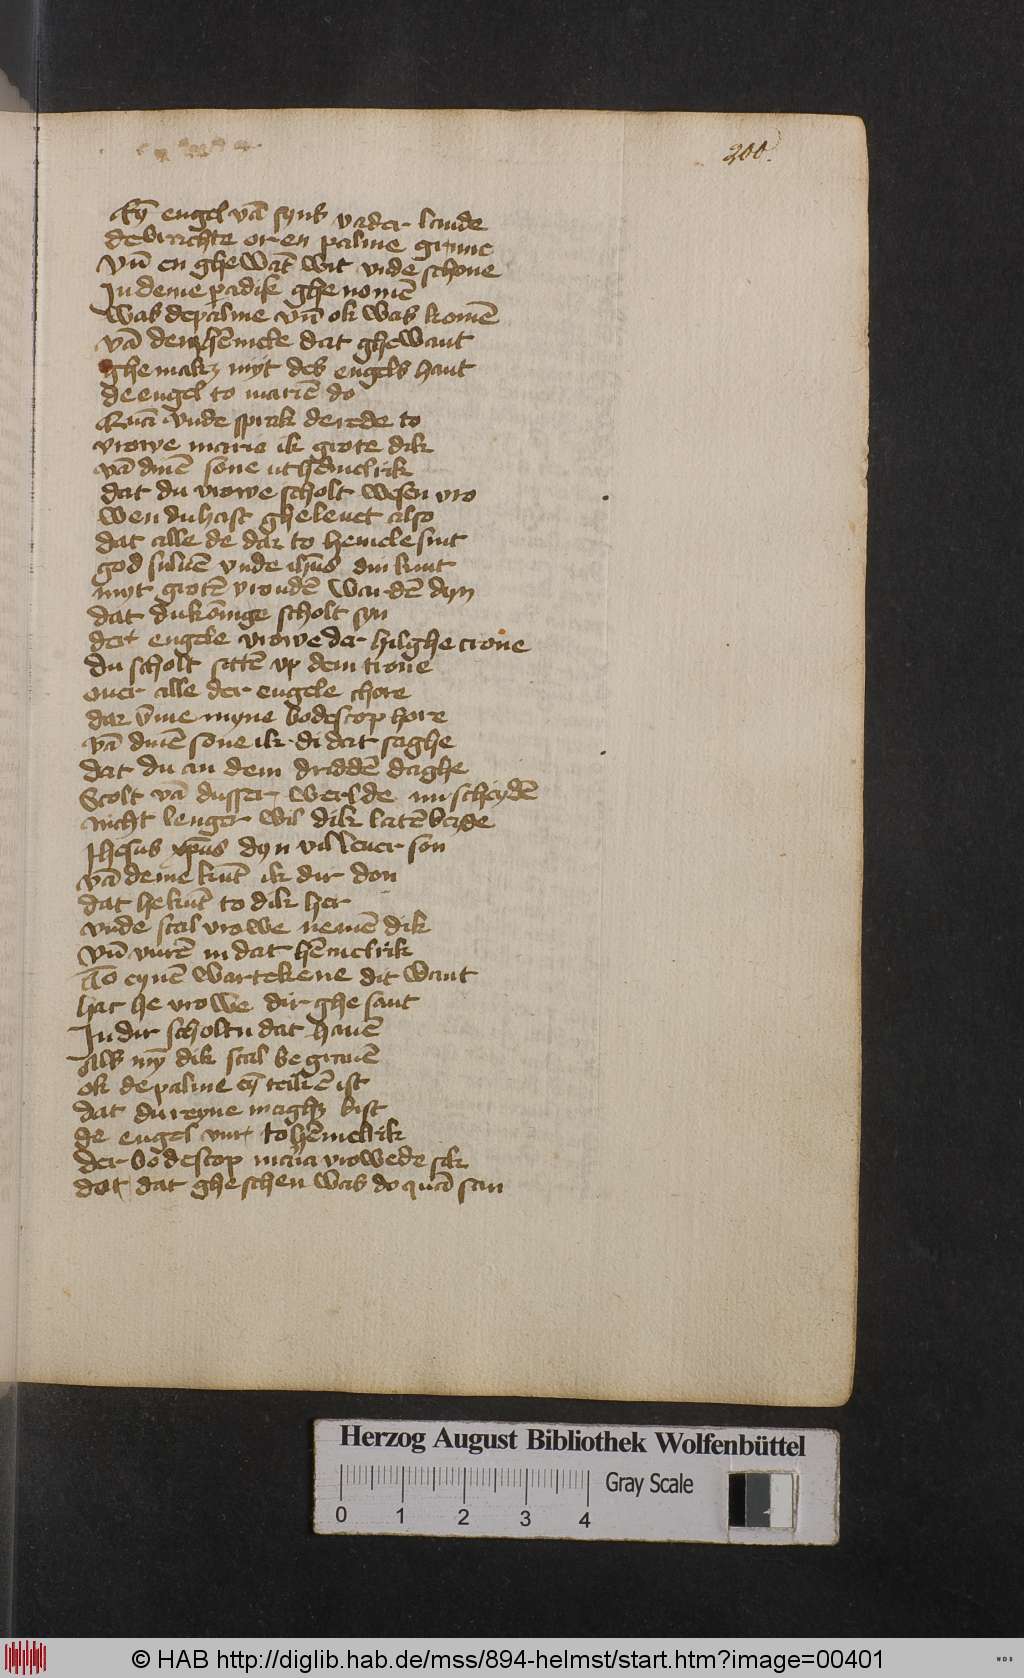 200.
Eyn̄ engel vā syns vader lande
de brachte or en palme grune
Vn̄ en ghewāt wit vnde schone
In deme padise ghenomē
Was de palme vn̄ ok was komē
vā dem hēmele dat ghewant
ghemakz myt des engels hant
de engel to mariē do
vnde sprak de rede to
vrowe marie ik grote dik
vā dinē sone ut hēmelrik
dat du vrowe scholt wesen vro
wen du hast gheleuet also
dat alle de dar to hemele sint
god suluē vnde ihūs din kint
myt grotē vroudē warden dyn
dat du kōninge scholt syn
der engele vrowe der hilghe crone
du scholt sittē vp dem trone
ouer alle der engele chore
dar v̄me myne bodescop hore
vā dinē sone ik di dat saghe
dat du an dem driddē daghe
Scolt vā dusser werlde nu scheydē
nicht lenger wil dik latē beyde
Jhesus xp̄us dyn vil leuer son
vā deme kūt ik dir don
dat he kūt to dik her
vnde scal vrowe nemē dik
vn̄ vurē in dat hēmelrik
To eynē wartekene dit want
hat he vrowe dir ghesant
In dir scholtu dat hauē
Als mȳ dik scal begrauē
ok de palme eȳ teikē ist
dat du reyne maghz bist
de engel vur to hēmelrik
der bodescop maria vrowede sik
dot dat gheschen was do quā san
Herzog August Bibliothek Wolfenbüttel
0 1 2 3 4
Gray Scale
© HAB http://diglib.hab.de/mss/894-helmst/start.htm?image=00401